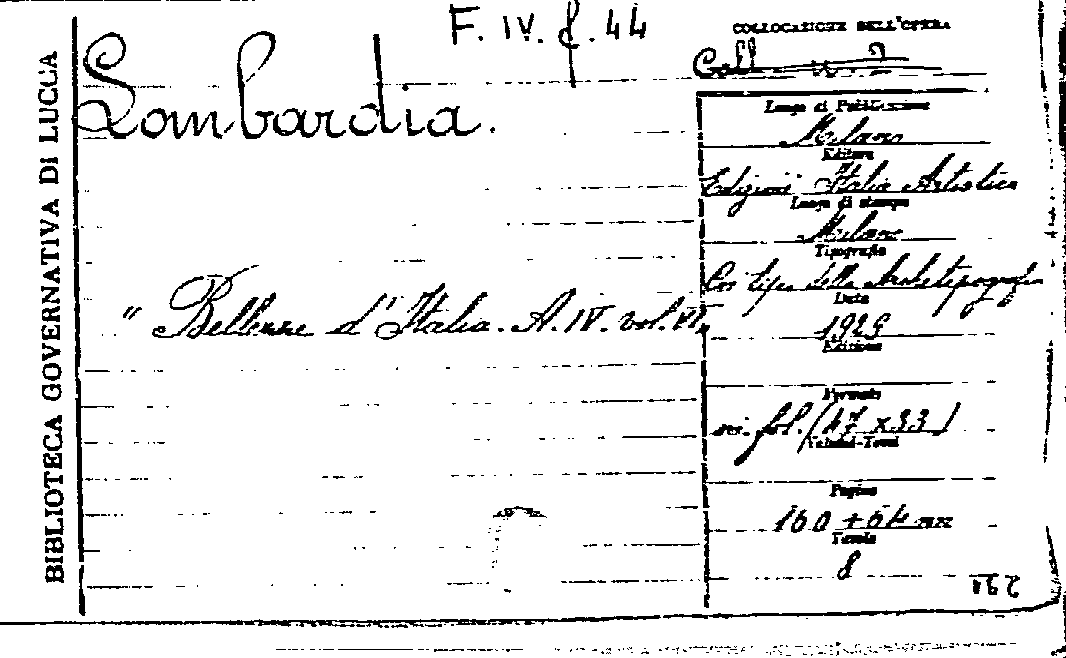 BIBLIOTECA GOVERNATIVA DI LUCCA
F. IV. f. 44
Lombardia.
"Bellezze d'Italia. A. IV. vol. VI.
COLLOCAZIONE DELL'OPERA
Coll
Luogo di Pubblicazione
Milano
Editore
Edizioni Italia Artistica
Luogo di stampa
Milano
Tipografia
Coi tipi della Archetipografia
Data
1929
Edizione
Formato
in fol. (47 x 33)
Volumi-Tomi
Pagine
160 + 64 nn
Tavole
8